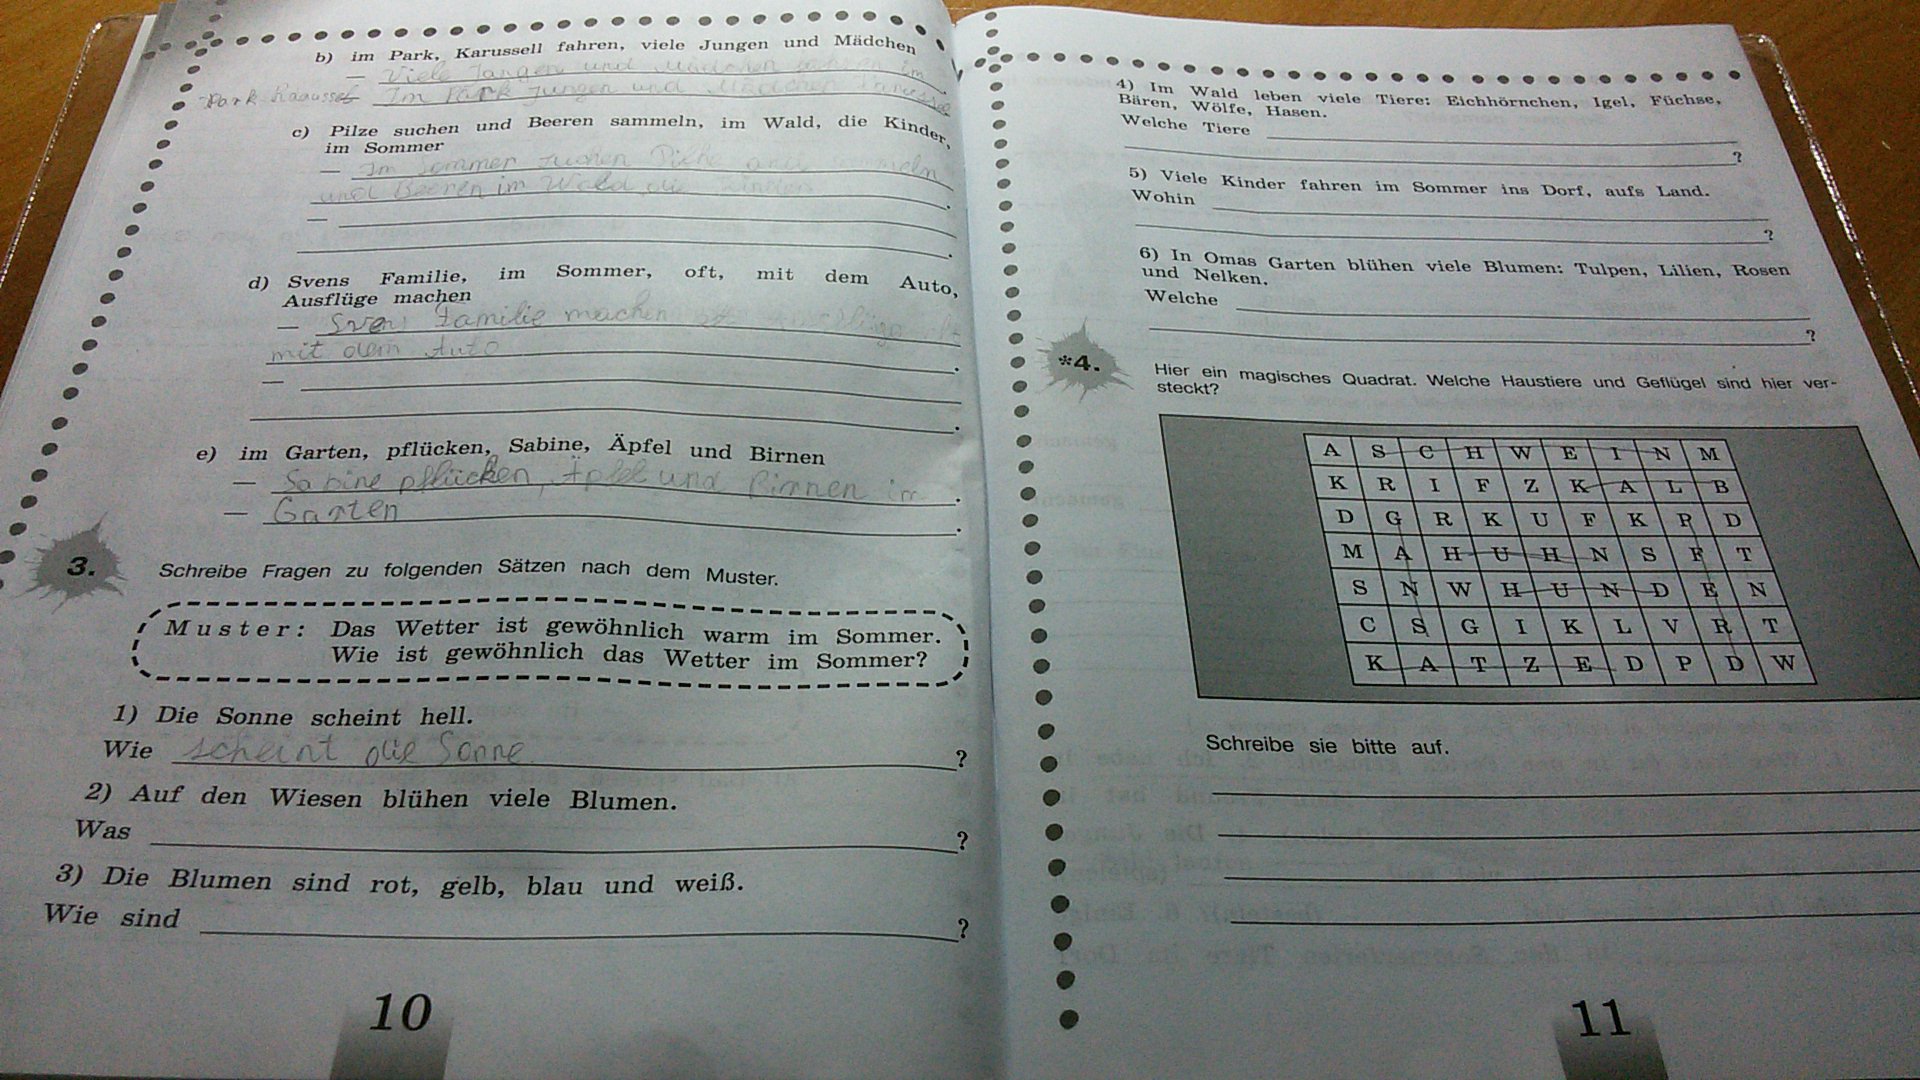 b) im Park, Karussell fahren, viele Jungen und Mädchen
— Viele Jungen und Mädchen fahren im
Park Karussel Im Park Jungen und Mädchen
c) Pilze suchen und Beeren sammeln, im Wald, die Kinder,
im Sommer
— Im Sommer suchen Pilze
und Beeren im Wald die Kinder.
—
.
d) Svens Familie, im Sommer, oft, mit dem Auto,
Ausflüge machen
— Svens Familie machen
mit dem Auto.
—
.
e) im Garten, pflücken, Sabine, Äpfel und Birnen
— Sabine pflücken, Äpfel und Birnen im.
— Garten.
3. Schreibe Fragen zu folgenden Sätzen nach dem Muster.
Muster: Das Wetter ist gewöhnlich warm im Sommer.
Wie ist gewöhnlich das Wetter im Sommer?
1) Die Sonne scheint hell.
Wie scheint die Sonne?
2) Auf den Wiesen blühen viele Blumen.
Was ?
3) Die Blumen sind rot, gelb, blau und weiß.
Wie sind ?
10
4) Im Wald leben viele Tiere: Eichhörnchen, Igel, Füchse,
Bären, Wölfe, Hasen.
Welche Tiere
?
5) Viele Kinder fahren im Sommer ins Dorf, aufs Land.
Wohin
?
6) In Omas Garten blühen viele Blumen: Tulpen, Lilien, Rosen
und Nelken.
Welche
?
*4. Hier ein magisches Quadrat. Welche Haustiere und Geflügel sind hier ver-
steckt?
A S C H W E I N M
K R I F Z K A L B
D G R K U F K P D
M A H U H N S F T
S N W H U N D E N
C S G I K L V R T
K A T Z E D P D W
Schreibe sie bitte auf.
11